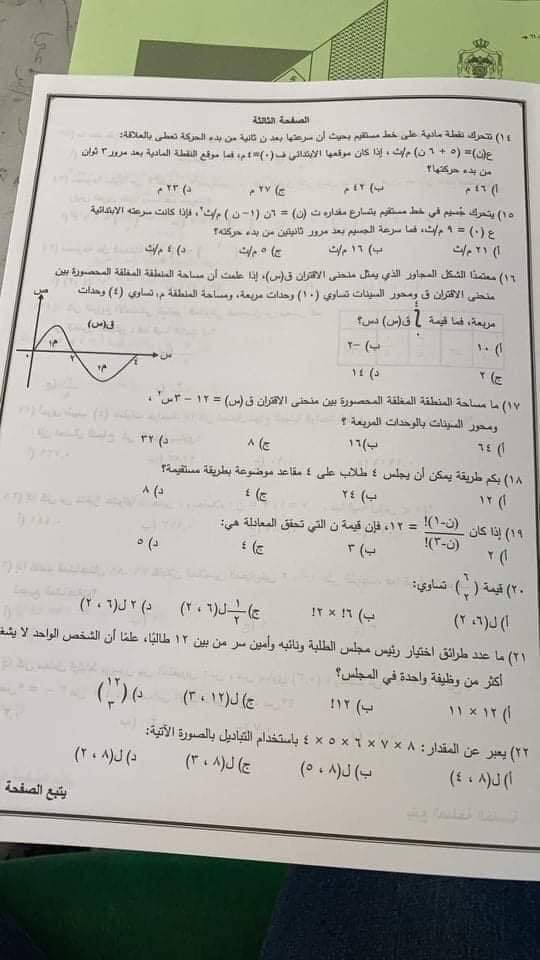 الصفحة الثالثة
١٤) تتحرك نقطة مادية على خط مستقيم بحيث أن سرعتها بعد ن ثانية من بدء الحركة تعطى بالعلاقة:
ع(ن)= (٥ + ٦ ن) م/ث ، إذا كان موقعها الابتدائي ف(٠)=٤م، فما موقع النقطة المادية بعد مرور ٣ ثوان
من بدء حركتها؟
أ) ٤٦ م ب) ٤٢ م ج) ٢٧ م د) ٢٣ م
١٥) يتحرك جُسيم في خط مستقيم بتسارع مقداره ت (ن) = ٦ن (١− ن ) م/ث٢، فإذا كانت سرعته الابتدائية
ع (٠) = ٩ م/ث، فما سرعة الجسيم بعد مرور ثانيتين من بدء حركته؟
أ) ٢١ م/ث ب) ١٦ م/ث ج) ٥ م/ث د) ٤ م/ث
١٦) معتمدًا الشكل المجاور الذي يمثل منحنى الاقتران ق(س)، إذا علمت أن مساحة المنطقة المغلقة المحصورة بين
منحنى الاقتران ق ومحور السينات تساوي (١٠) وحدات مربعة، ومساحة المنطقة م١ تساوي (٤) وحدات
مربعة، فما قيمة ∫٠٤ ق(س) دس؟
أ) ١٠ ب) −٢
ج) ٢ د) ١٤
ص
ق(س)
م١
م٢
س
٠ ٢ ٤
١٧) ما مساحة المنطقة المغلقة المحصورة بين منحنى الاقتران ق(س) = ١٢ − ٣س٢ ،
ومحور السينات بالوحدات المربعة ؟
أ) ٦٤ ب)١٦ ج) ٨ د) ٣٢
١٨) بكم طريقة يمكن أن يجلس ٤ طلاب على ٤ مقاعد موضوعة بطريقة مستقيمة؟
أ) ١٢ ب) ٢٤ ج) ٤ د) ٨
١٩) إذا كان (ن-١)!/(ن-٣)! = ١٢، فإن قيمة ن التي تحقق المعادلة هي:
أ) ٢ ب) ٣ ج) ٤ د) ٥
٢٠) قيمة (٦ ٢) تساوي:
أ) ل(٦، ٢) ب) ٦! × ٢! ج) ١/٢ ل(٦ ، ٢) د) ٢ ل(٦ ، ٢)
٢١) ما عدد طرائق اختيار رئيس مجلس الطلبة ونائبه وأمين سر من بين ١٢ طالبًا، علمًا أن الشخص الواحد لا يشغ
أكثر من وظيفة واحدة في المجلس؟
أ) ١٢ × ١١ ب) ١٢! ج) ل(١٢ ، ٣) د) (١٢ ٣)
٢٢) يعبر عن المقدار: ٨ × ٧ × ٦ × ٥ × ٤ باستخدام التباديل بالصورة الآتية:
أ) ل(٨ ، ٤) ب) ل(٨ ، ٥) ج) ل(٨ ، ٣) د) ل(٨ ، ٢)
يتبع الصفحة